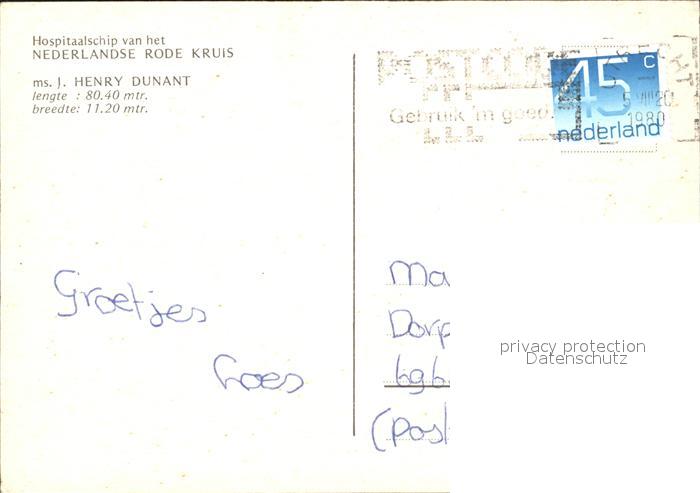 Hospitaalschip van het
NEDERLANDSE RODE KRUIS
ms. J. HENRY DUNANT
lengte : 80.40 mtr.
breedte: 11.20 mtr.
POSTCODE
Gebruik 'm goed.
45 c
nederland
1980
Groetjes
Loes
Ma
Dorp
(post
privacy protection
Datenschutz